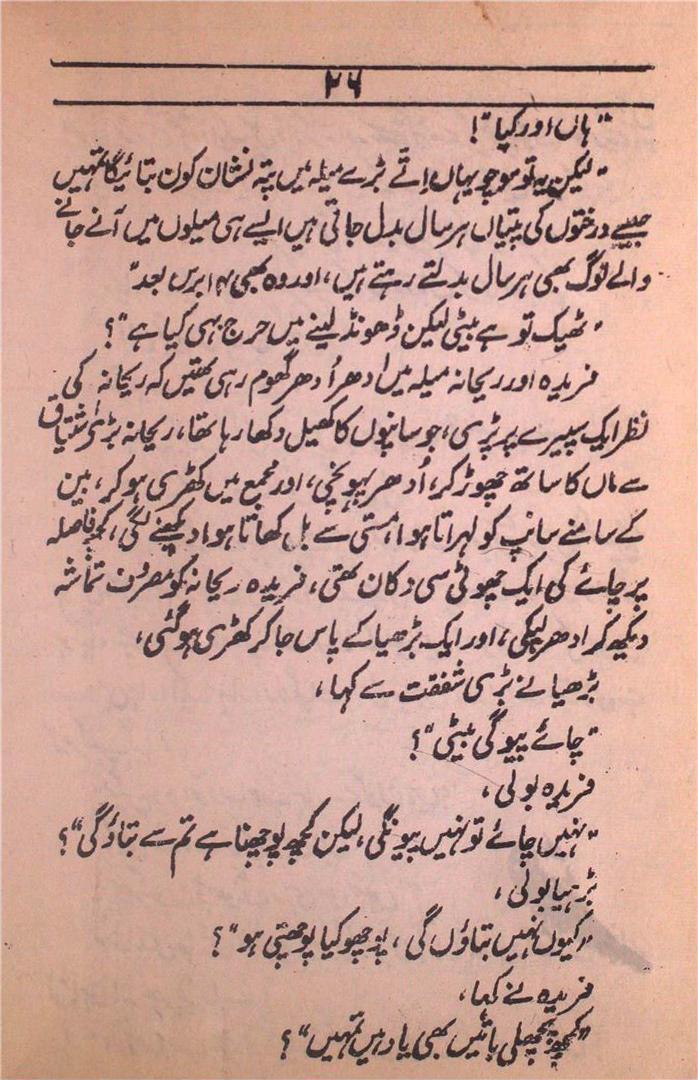 ۲۶
"ہاں اور کیا"!
"لیکن یہ تو سوچو یہاں اتنے بڑے میلہ میں پتہ نشان کون بتائیگا تمہیں
جیسے درختوں کی پتیاں ہر سال بدل جاتی ہیں ایسے ہی میلوں میں آنے جانے
والے لوگ بھی ہر سال بدلتے رہتے ہیں، اور وہ بھی برس بعد"
"ٹھیک تو ہے بیٹی لیکن ڈھونڈ لینے میں حرج ہی کیا ہے"؟
فریدہ اور ریحانہ میلہ میں ادھر اُدھر گھوم رہی تھیں کہ ریحانہ کی
نظر ایک سپیرے پر پڑی، جو سانپوں کا کھیل دکھا رہا تھا، ریحانہ بڑی اشتیاق
سے ماں کا ساتھ چھوڑ کر، اُدھر پہونچی، اور مجمع میں کھڑی ہو کر، بین
کے سامنے سانپ کو لہراتا ہوا، مستی سے بل کھاتا ہوا دیکھنے لگی، کچھ فاصلہ
پر چائے کی ایک چھوٹی سی دکان تھی، فریدہ ریحانہ کو مصروف تماشہ
دیکھ کر ادھر لپکی، اور ایک بڑھیا کے پاس جا کر کھڑی ہو گئی،
بڑھیا نے بڑی شفقت سے کہا،
"چائے پیو گی بیٹی"؟
فریدہ بولی،
"نہیں چائے تو نہیں پیونگی، لیکن کچھ پوچھنا ہے تم سے بتاؤ گی"؟
بڑھیا بولی،
"کیوں نہیں بتاؤں گی، پوچھو کیا پوچھتی ہو"؟
فریدہ نے کہا،
"کچھ پچھلی باتیں بھی یاد ہیں تمہیں"؟